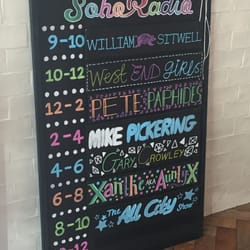 Soho Radio
9-10 WILLIAM SITWELL
10-12 West END GiRLS
12-2 PETE PAPHIDES
2-4 MIKE PICKERING
4-6 GARY CROWLEY
6-8
8-10 The All City Show